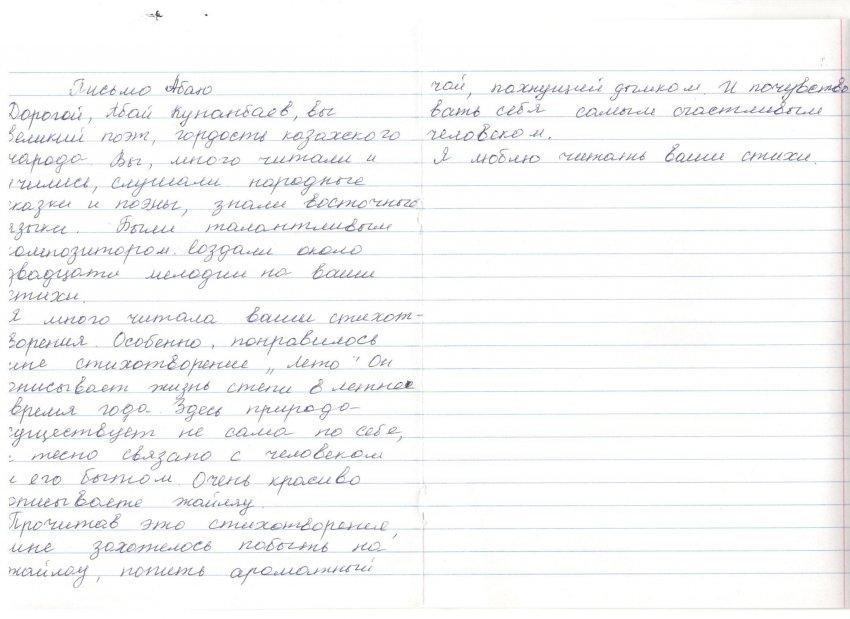 Письмо Абаю
Дорогой, Абай Кунанбаев, вы
великий поэт, гордость казахского
народа. Вы, много читали и
учились, слушали народные
сказки и поэмы, знали восточного
языки. Были талантливым
композитором. Создали около
двадцати мелодии на ваши
стихи.
Я много читала ваши стихот-
ворения. Особенно, понравилось
мне стихотворение „Лето" Он
описывает жизнь степи в летнее
время года. Здесь природа
существует не сама по себе,
а тесно связано с человеком
и его бытом. Очень красиво
описываете жайляу.
Прочитав это стихотворения,
мне захотелось побыть на
жайлау, попить ароматный
чай, пахнущий дымком. И почувство
вать себя самым счастливым
человеком.
Я люблю читать ваши стихи.